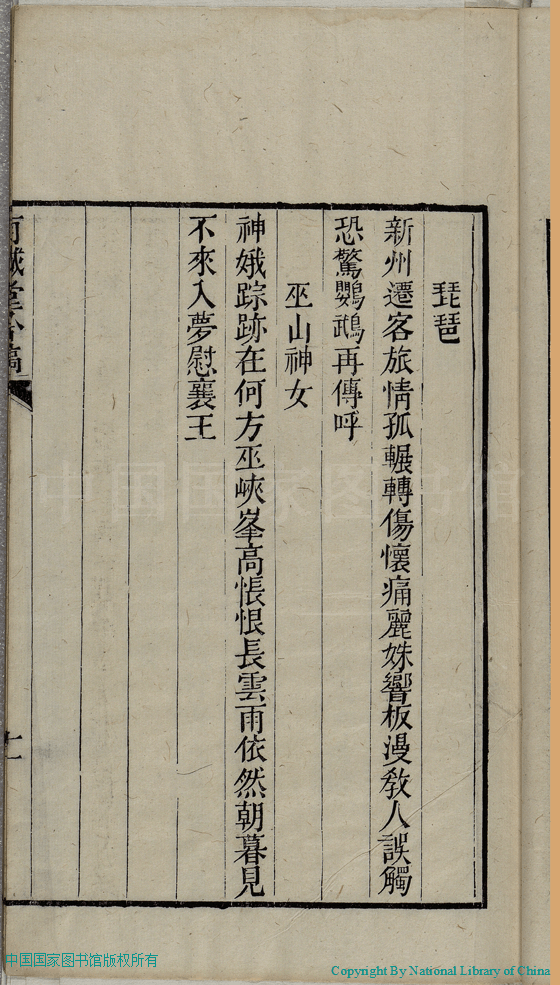 琵琶
新州遷客旅情孤輾轉傷懷痛麗姝響板漫教人誤觸
恐驚鸚鵡再傳呼
巫山神女
神娥踪跡在何方巫峽峯高悵恨長雲雨依然朝暮見
不來入夢慰襄王
堂
稿
中国国家图书馆
中国国家图书馆版权所有
Copyright By National Library of China